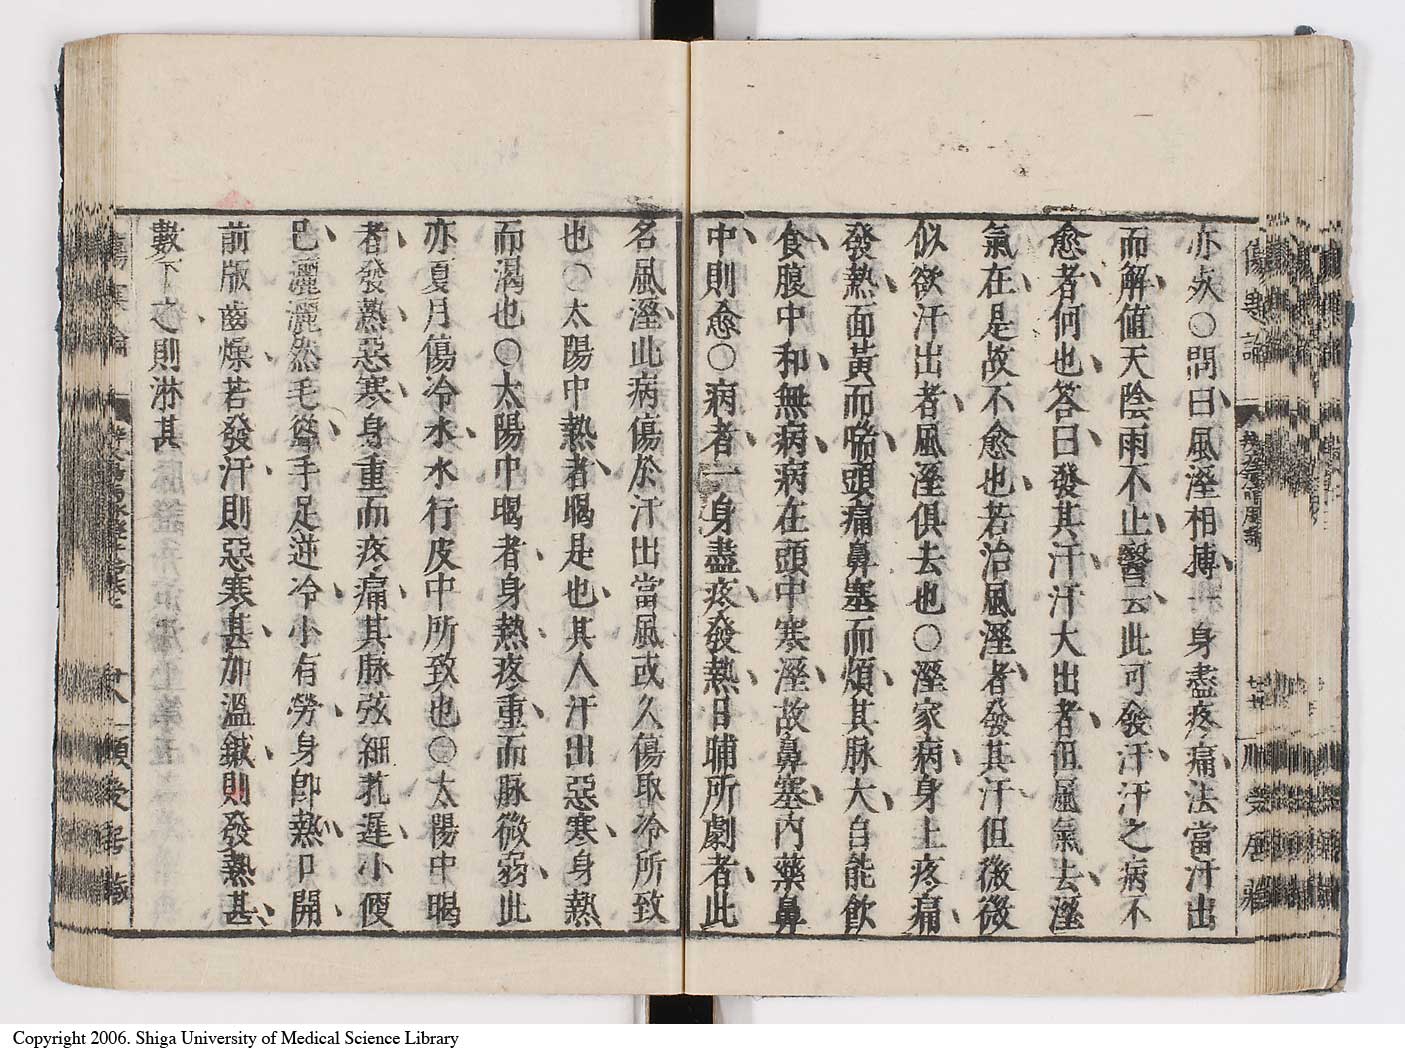 亦死○問曰風溼相搏一身盡疼痛法當汗出
而解値天陰雨不止醫云此可發汗汗之病不
愈者何也答曰發其汗汗大出者但風氣去溼
氣在是故不愈也若治風溼者發其汗但微微
似欲汗出者風溼俱去也○溼家病身上疼痛
發熱面黃而喘頭痛鼻塞而煩其脉大自能飮
食腹中和無病病在頭中寒溼故鼻塞內藥鼻
中則愈○病者一身盡疼發熱日晡所劇者此
名風溼此病傷於汗出當風或久傷取冷所致
也○太陽中熱者暍是也其人汗出惡寒身熱
而渴也○太陽中暍者身熱疼重而脉微弱此
亦夏月傷冷水水行皮中所致也○太陽中暍
者發熱惡寒身重而疼痛其脉弦細芤遲小便
已灑灑然毛聳手足逆冷小有勞身卽熱口開
前版齒燥若發汗則惡寒甚加溫鍼則發熱甚
數下之則淋甚
傷寒論
順受居藏
Copyright 2006. Shiga University of Medical Science Library